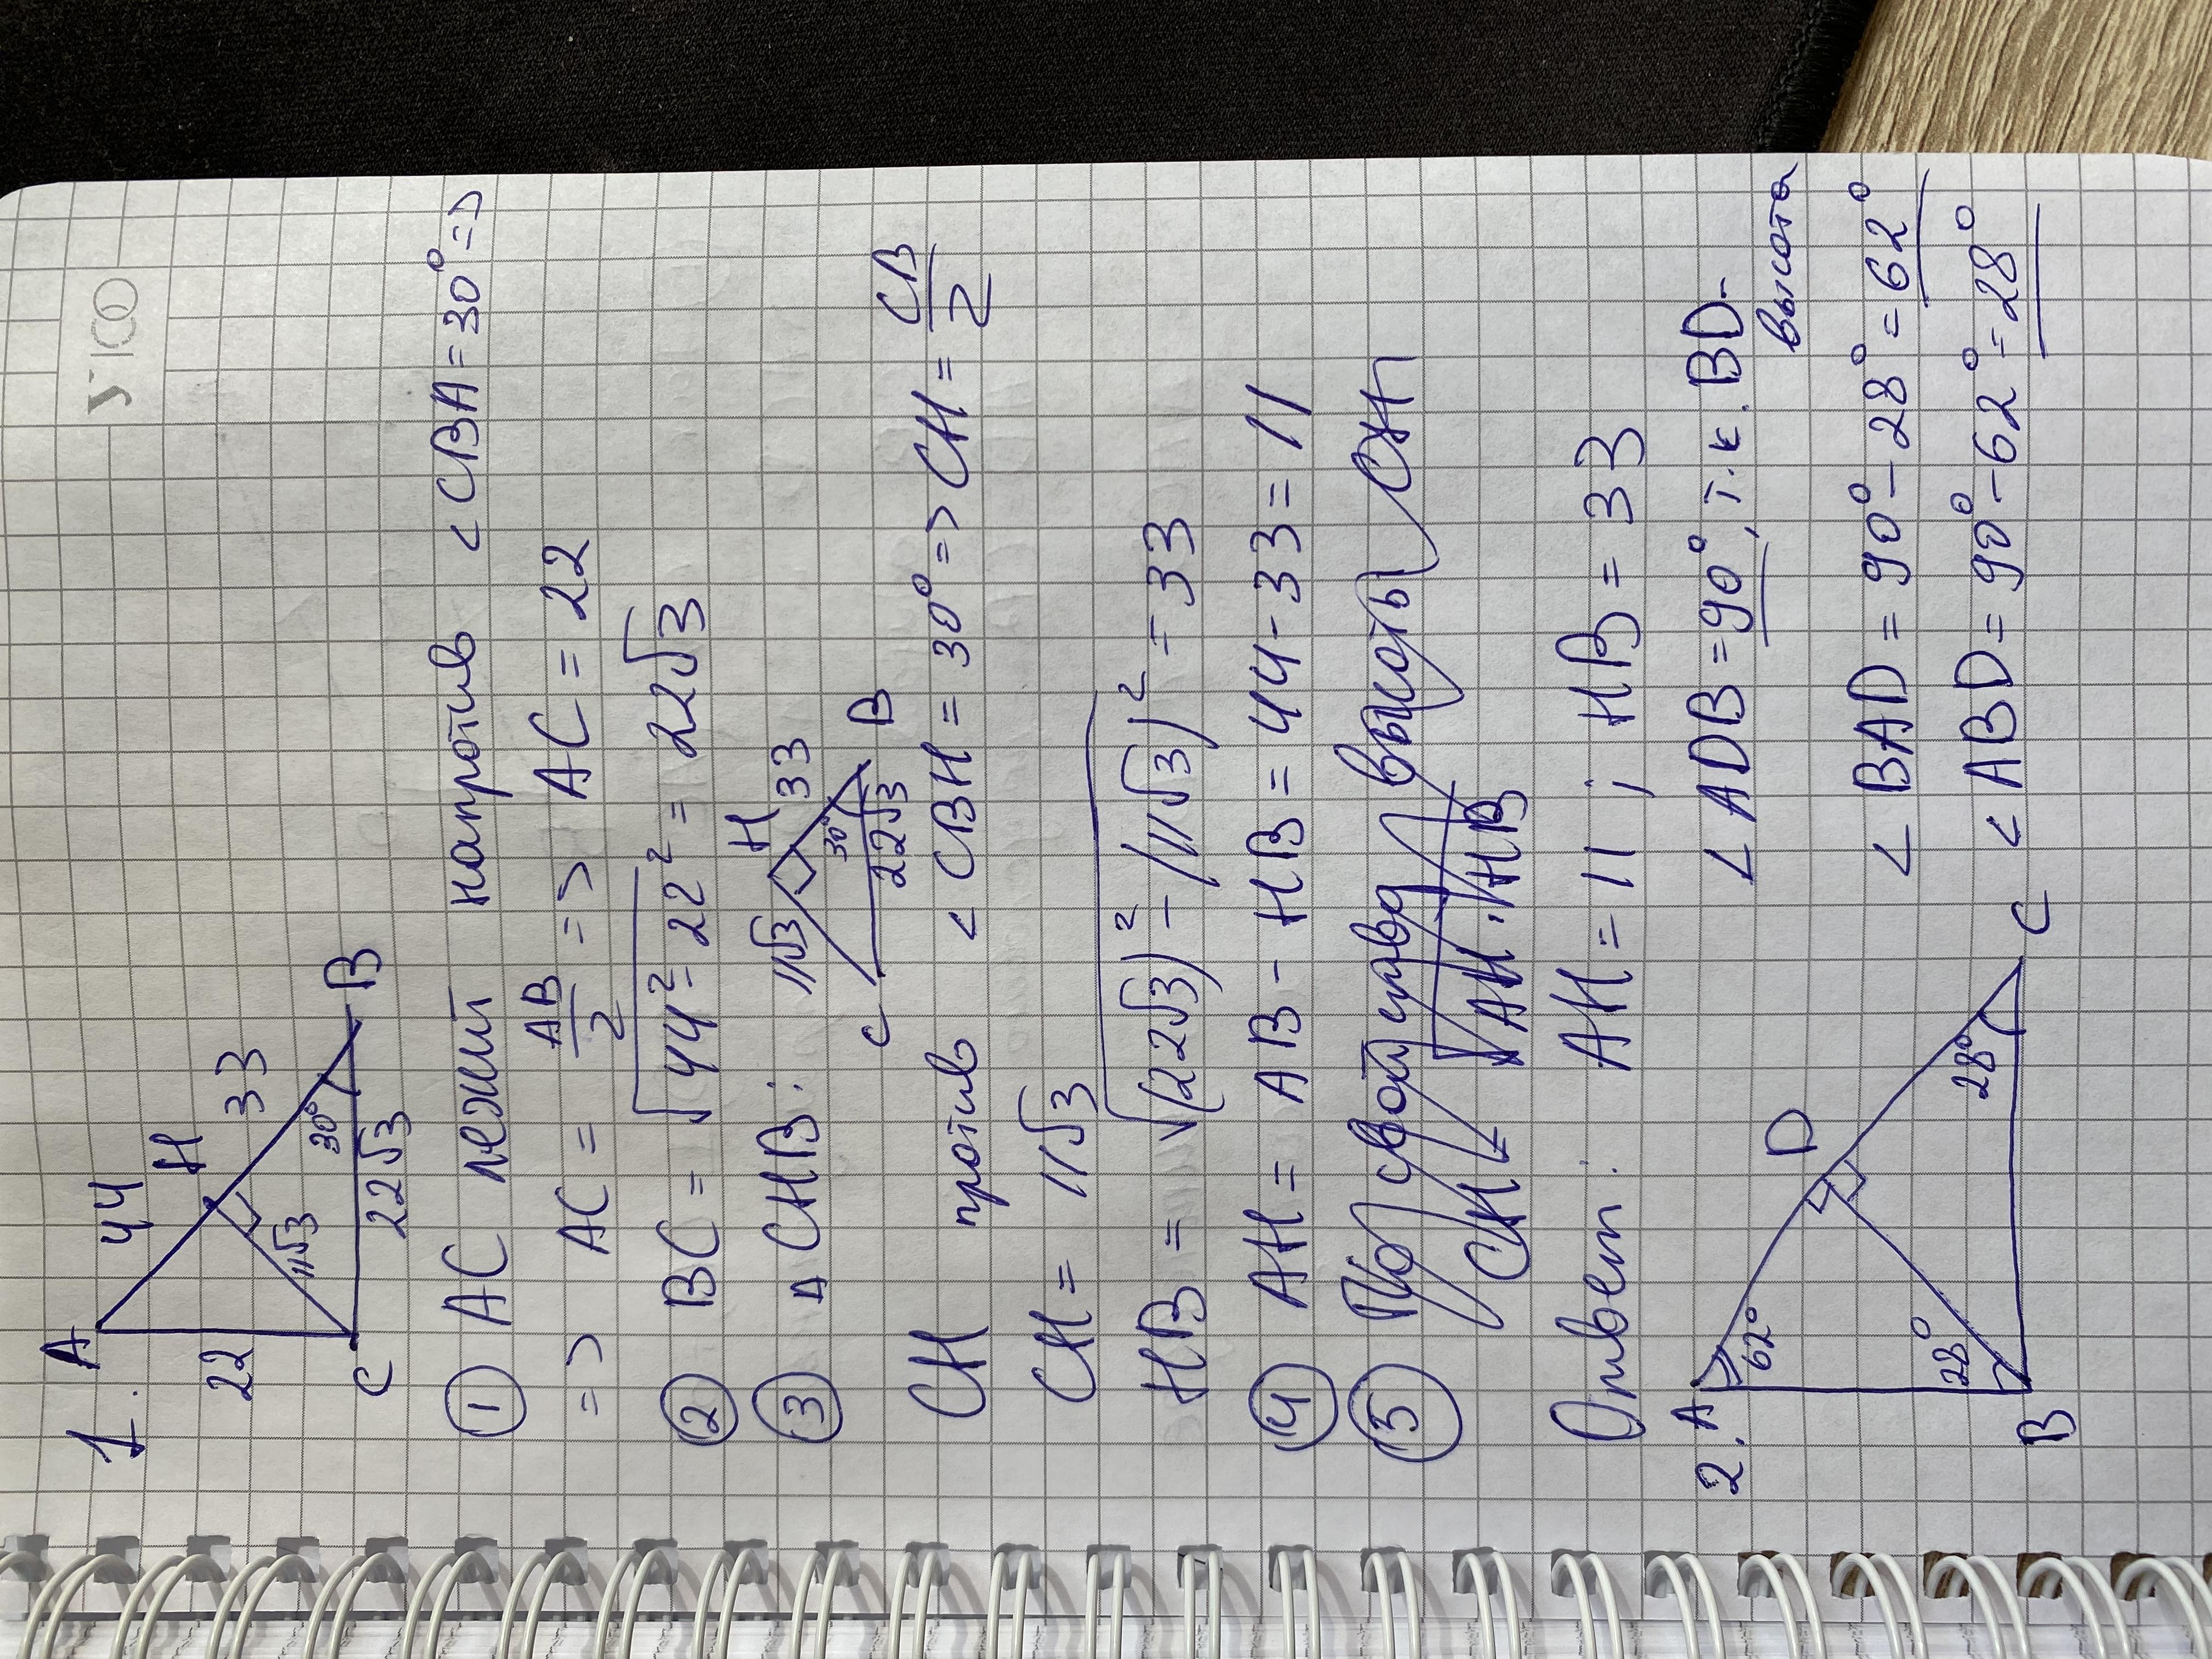 УТСО
1.
A
44
H
33
22
11√3
30°
C
22√3
B
① AC лежит напротив <CBA=30° =>
=> AC = AB/2 => AC = 22
② BC = √44²-22² = 22√3
③ △ CHB:
11√3
H
33
30°
C
22√3
B
CH против <CBH = 30° => CH = CB/2
CH = 11√3
HB = √(22√3)² - (11√3)² = 33
④ AH = AB - HB = 44 - 33 = 11
⑤ По свой прав высоты CH
CH = √AH·HB
Ответ: AH = 11 ; HB = 33
2.
A
D
62°
28°
28°
B
C
∠ ADB = 90°, т.к. BD - высота
∠ BAD = 90° - 28° = 62°
< ABD = 90° - 62° = 28°